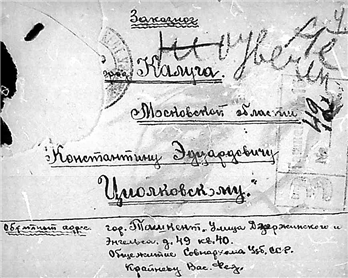 Заказное
город Калуга.
Московской области
Константину Эдуардовичу
Циолковскому."
Обратный адрес гор. Ташкент, Улица Дзержинского и
Энгельса, д. 49 кв. 40.
Общежитие Совнархома Узб. ССР.
Крайневу Вас. Фед.